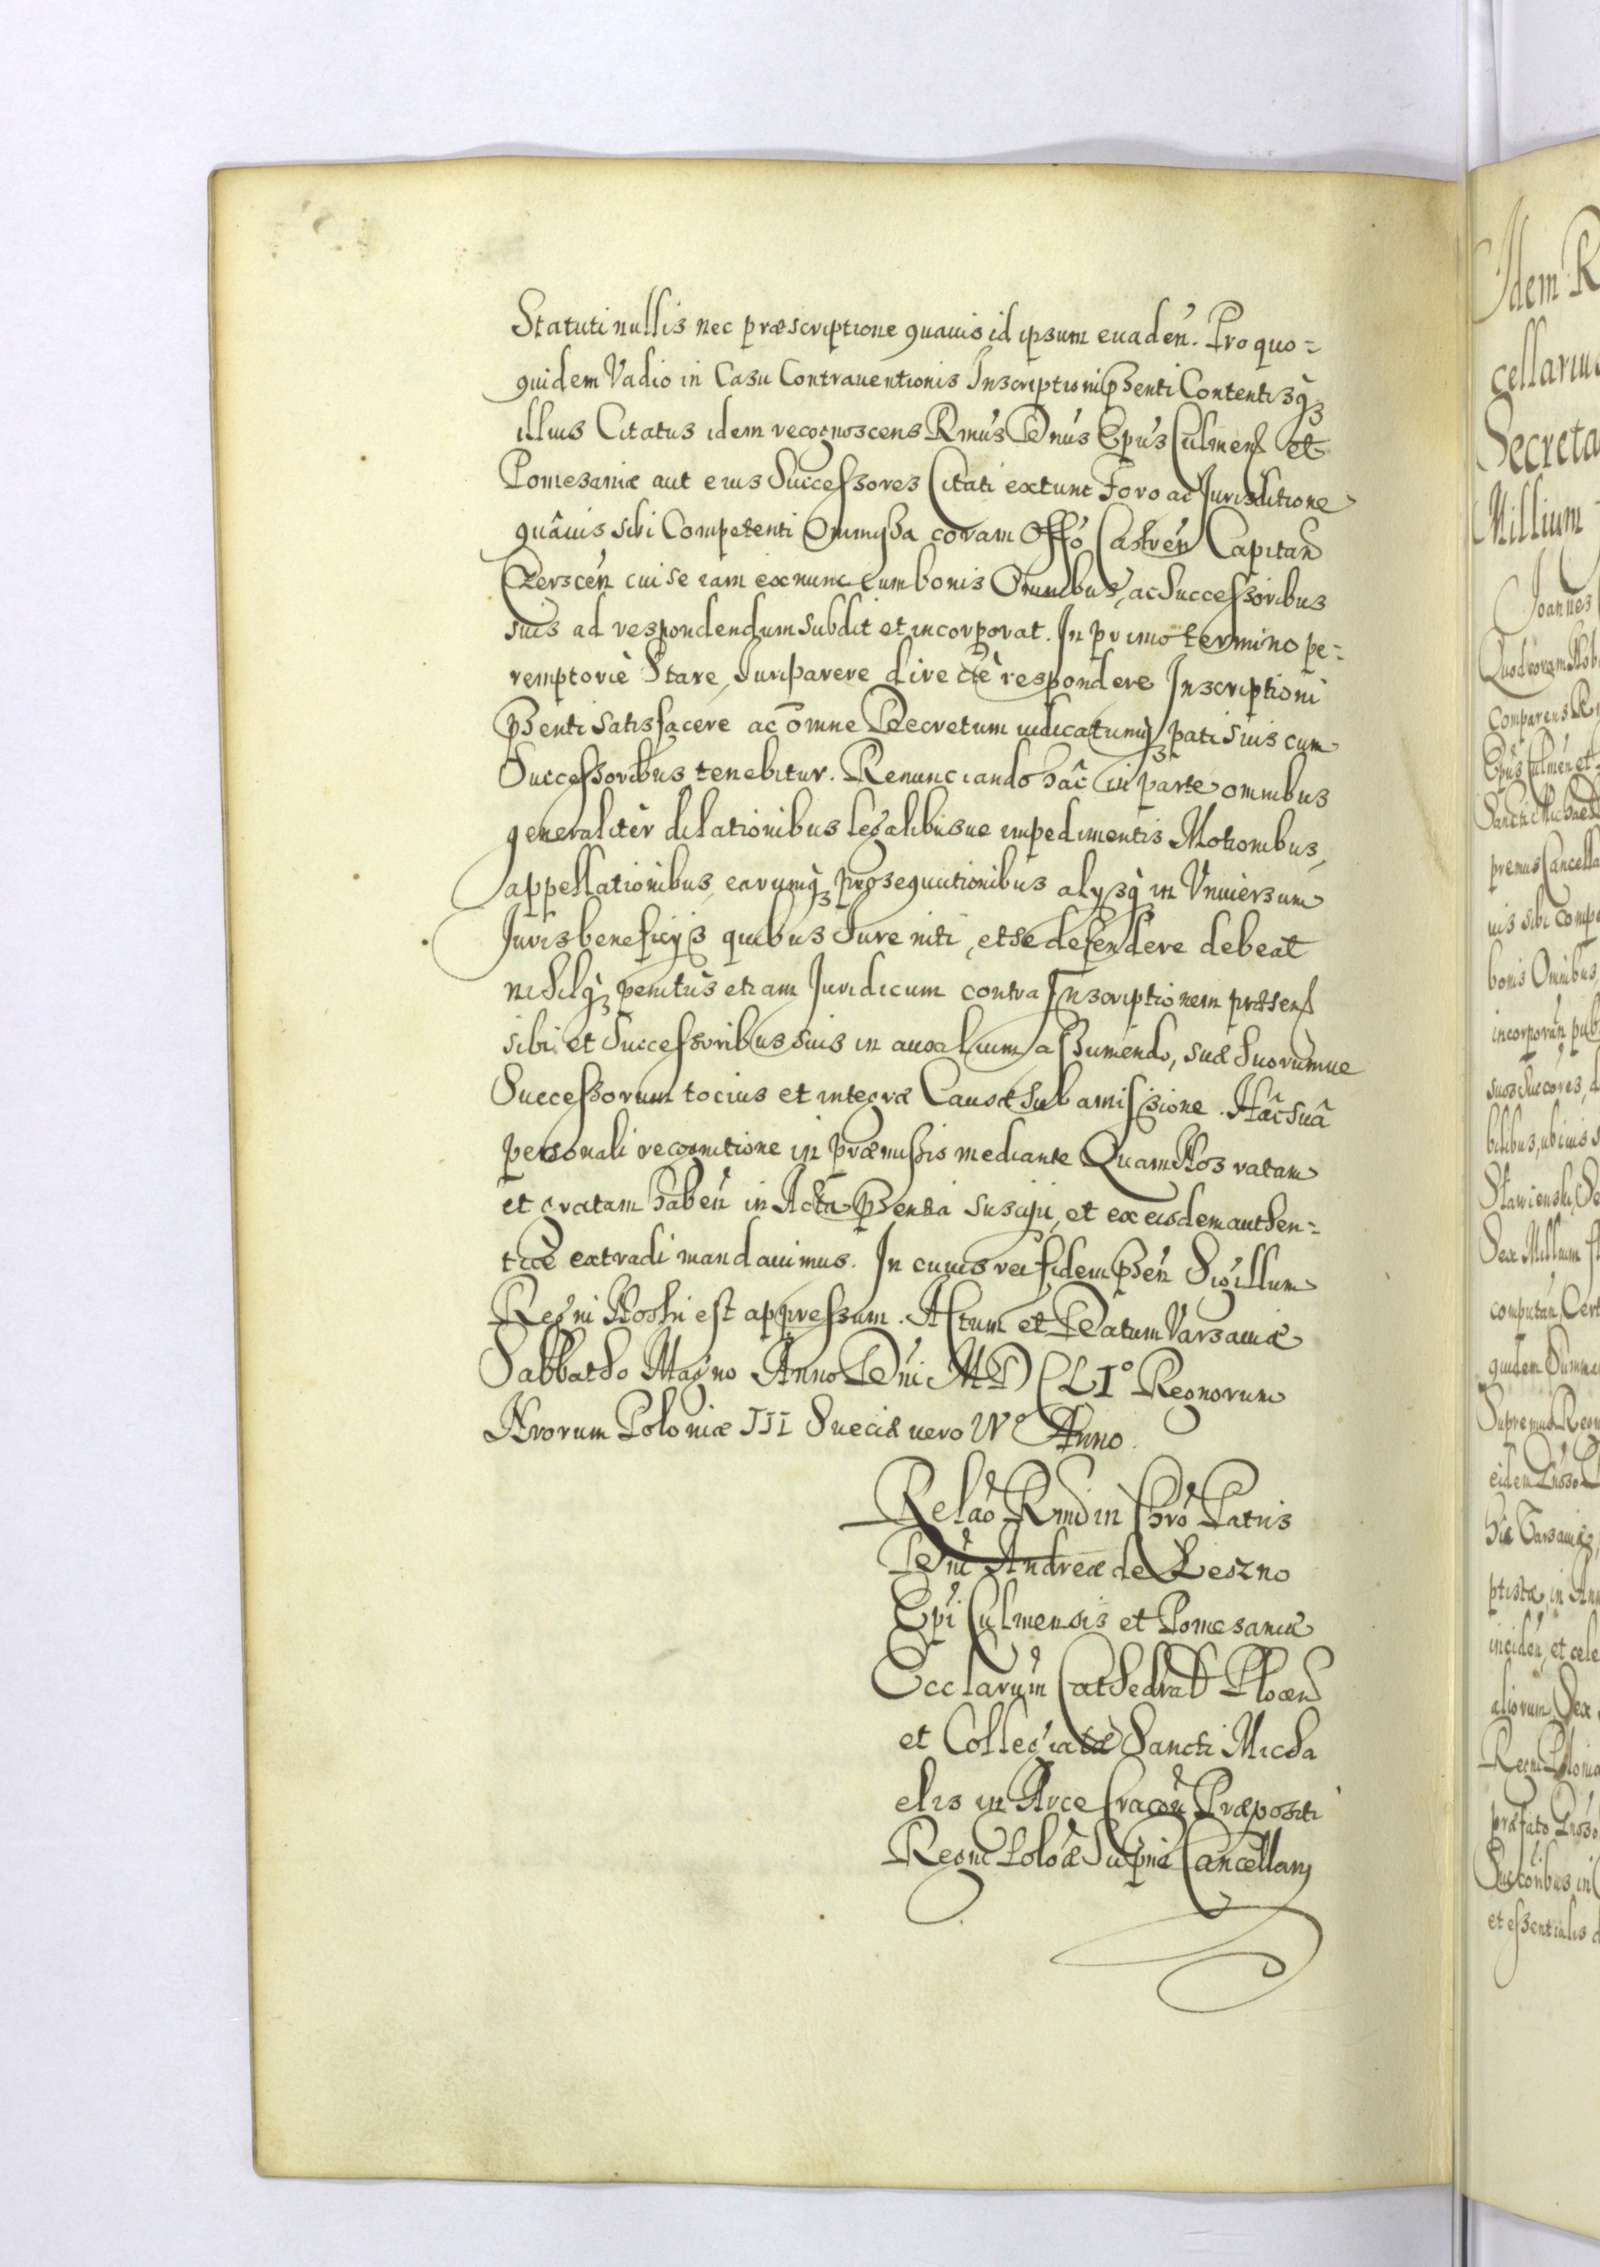 Statuti nullis nec præscriptione quauis id ipsum euadeń. Pro quo=
quidem Vadio in Casu Contrauentionis Inscriptioni pſſenti Contentisq̧
illius Citatus idem recognoscens Rmus Dnus Epus Culmenſ et
Pomesaniæ aut eius Successores Citati extunc Foro ac Jurisditione
quâuis sibi Competenti Ommissa coram Offo Castreń Capitan
Cerscen cui se iam exnunc cum bonis Omnibus, ac Successoribus
suis ad respondendum subdit et incorporat. In primo termino pe=
remptoriè Stare, Juri parere directè respondere Inscriptioni
pſſenti satisfacere ac omne Decretum iudicatumq̧ pati suis cum
Successoribus tenebitur. Renunciando hâc in parte omnibus
generaliter dilationibus legalibusue impedimentis Motionibus,
appellationibus, earumq̧ prosequutionibus alysq̧ in Vniuersum
Juris beneficijs quibus Jure niti, et se defendere debeat
nihilq̧ penitus etiam Juridicum contra Inscriptionem præsenſ
sibi et Successoribus suis in auxilium assumendo, suæ Suorumue
Successorum tocius et integræ Causæ sub amissione. Hâc suâ
personali recognitione in præmissis mediante Quam Nos ratam
et gratam habeń in Acta pſſentia suscipi, et ex eisdem authen=
ticè extradi mandauimus. In cuius rei fidem pſſeń Sigillum
Regni Nostri est appressum. Actum et Datum Varsauiæ
Sabbatho Magno Anno Dni M D C L I° Regnorum
Nrorum Poloniæ III Sueciæ uero IV° Anno.
Relao Rmdi in Chro Patris
Dni Andreæ de Leszno
Epi Culmensis et Pomesaniæ
Ecclarum Cathedral Plocen
et Collegiatæ Sancti Micha
elis in Arce Cracou Præpositi
Regni Poloæ Supmi Cancellarij
Idem R
cellarius
Secreta
Millium
Joannes
Quod coram Nob
Comparens R
Epus Culmen et
Sancti Michaelis
premus Cancella
uis sibi Compe
bonis Omnibus,
incorporań pub
suos Succores, d
bilibus, ubiuis s
Sex Millium fl
computań, Cert
quidem Summa
Supremus Regn
his Varsauiæ,
ptistæ, in Ann
incideń, et cele
aliorum Sex
Regni Polonia
præfato
Succoribus in
et essentialis d